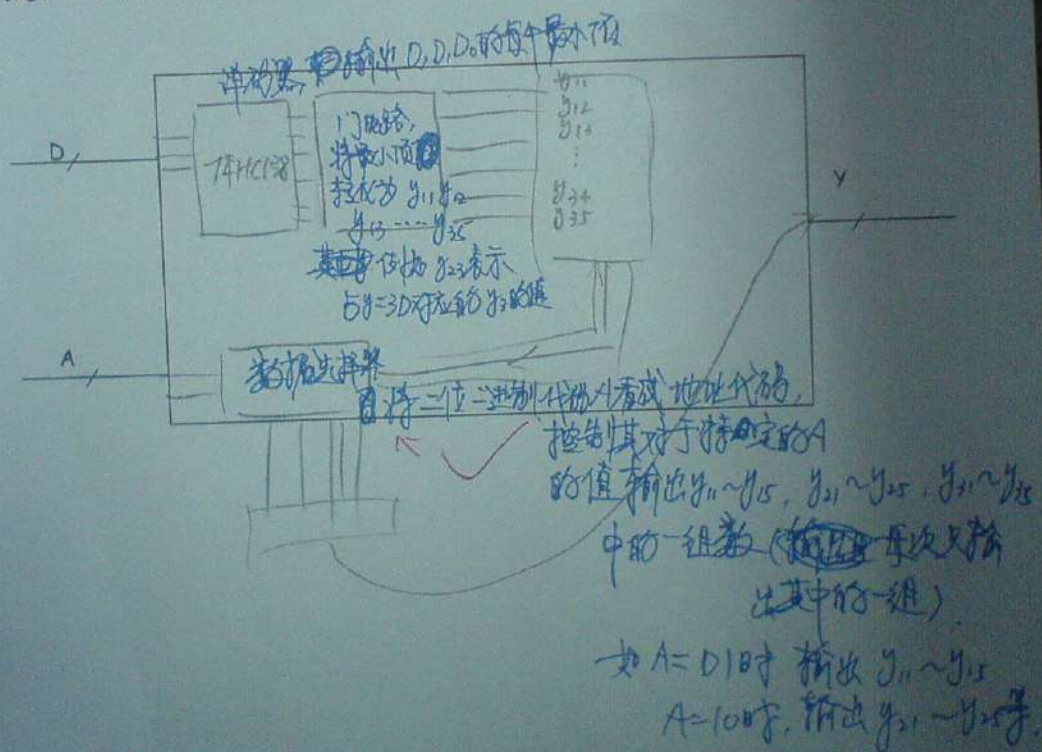 译码器, 输出 D₂D₁D₀的每个最小项
D
74HC138
门电路,
将最小项
转化为 y₁₁ y₁₂
y₁₃ ⋯ y₃₅
y₂₃表示
与y=3D对应的 y₃的值
y₁₁
y₁₂
y₁₃
⋮
y₃₄
y₃₅
Y
A
数据选择器
将二位二进制代码A看成地址代码,
控制其对于特定的A
的值输出y₁₁~y₁₅, y₂₁~y₂₅, y₃₁~y₃₅
中的一组数(每次只输
出其中的一组).
如 A=01时 输出 y₁₁~y₁₅
A=10时, 输出 y₂₁~y₂₅等.